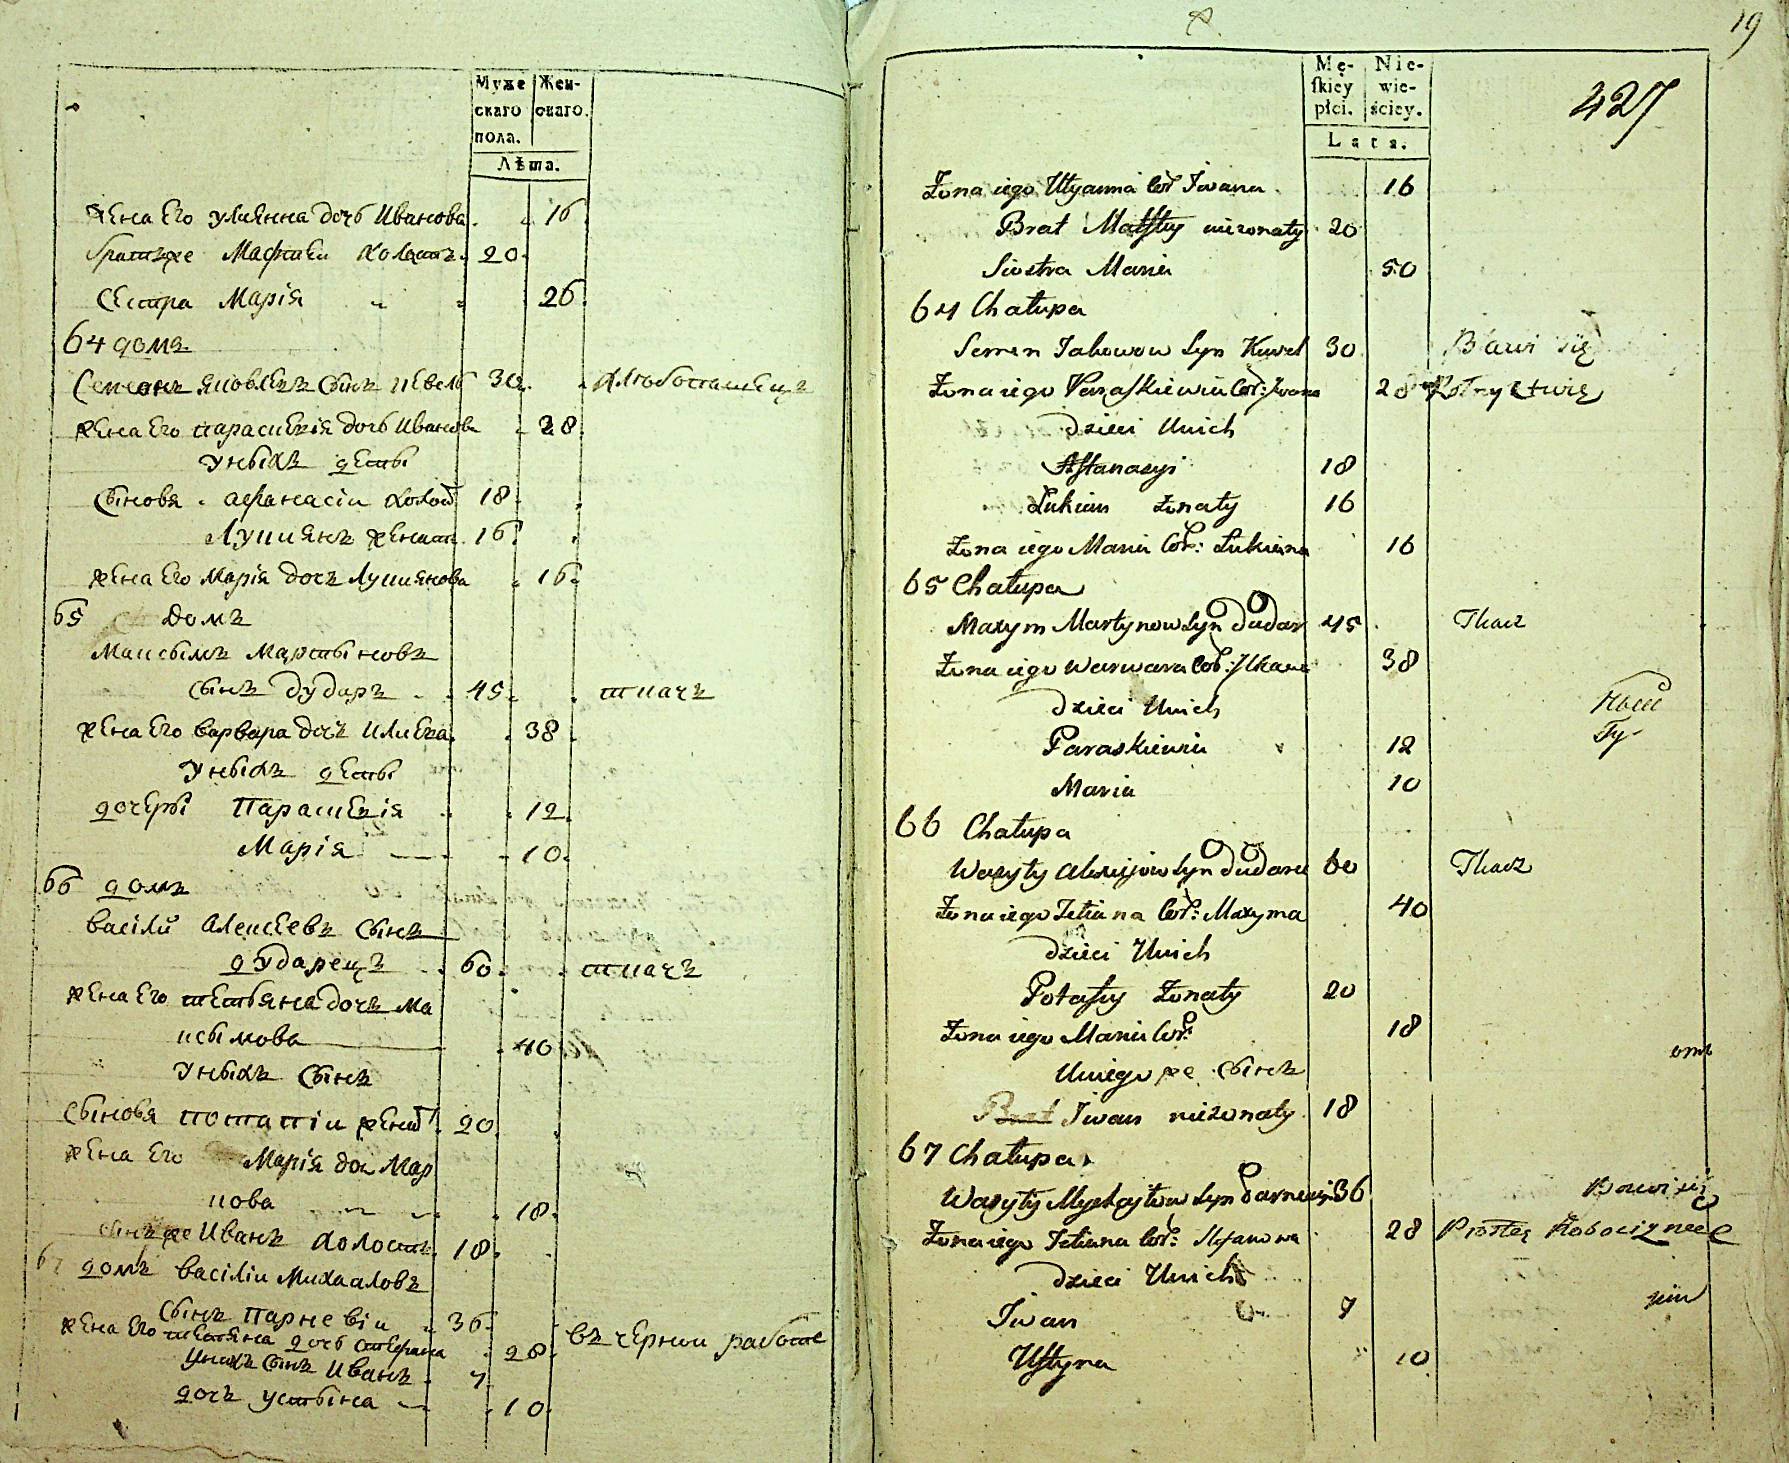 Муже
скаго
пола.
Жен-
скаго.
Лѣта.
жена Его улиянна дочь Иванова 16
братъ же Мафтеи холостъ 20
Сестра Марія 26
64 домъ
Семенъ Яковлевъ Сынъ 30
жена Его параскевія дочь Иванова 28
Уныхъ дети
Сыновя афанасіи холост 18
Лукиянъ женат 16
жена Его Марія дочъ Лукиянова 16
65 домъ
Максымъ Мартыновъ
сынъ дударъ 45 ткачъ
жена Его варвара дочъ Илиева 38
Уныхъ дети
дочери Параскевія 12
Марія 10
66 домъ
василій Алексеевъ Сынъ
дударецъ 60 ткачъ
жена Его тетьяна дочъ Ма
ксымова 40
Уныхъ Сынъ
Сыновя потапіи женат 20
жена Его Марія доч Мар
кова 18
сынъ же Иванъ холостъ 18
67 домъ василіи Михааловъ
Сынъ Парневіи 36
жена Его тетяна дочъ стефана 28 въ чернои работе
Унихъ сынъ Иванъ 7
дочъ устына 10
19
Mę-
ſkiey
płci.
Nie-
wie-
ściey.
Lata.
427
Żona iego Ulyanna Cor Iwana 16
Brat Maftey nieżonaty 20
Siostra Maria 50
64 Chałupa
Semen Jakowow Syn 30 Bawi się
Żona iego Paraskiewia Cor: Iwana 28 Kołnyctwię
dzieci Unich
Affanasyi 18
Łukian żonaty 16
Żona iego Maria Cor: Łukiana 16
65 Chałupa
Maxym Martynow Syn Dudar 45 Tkacz
Żona iego Warwara Cor: Ilkowa 38
dzieci Unich
Paraskiewia 12
Maria 10
66 Chałupa
Wasyły Alexijow Syn Dudarec 60 Tkacz
Żona iego Tetiana Cor: Maxyma 40
dzieci Unich
Potapiy żonaty 20
Żona iego Maria Cor: 18
Uniego же сынъ
Brat Iwan nieżonaty 18
67 Chałupa
Wasyły Mychajłow Syn Parnewij 36 Bawi się
Żona iego Tetiana Cor: Stefanowa 28 Prostą Robocizneie
dzieci Unich
Iwan 7
Ustyna 10